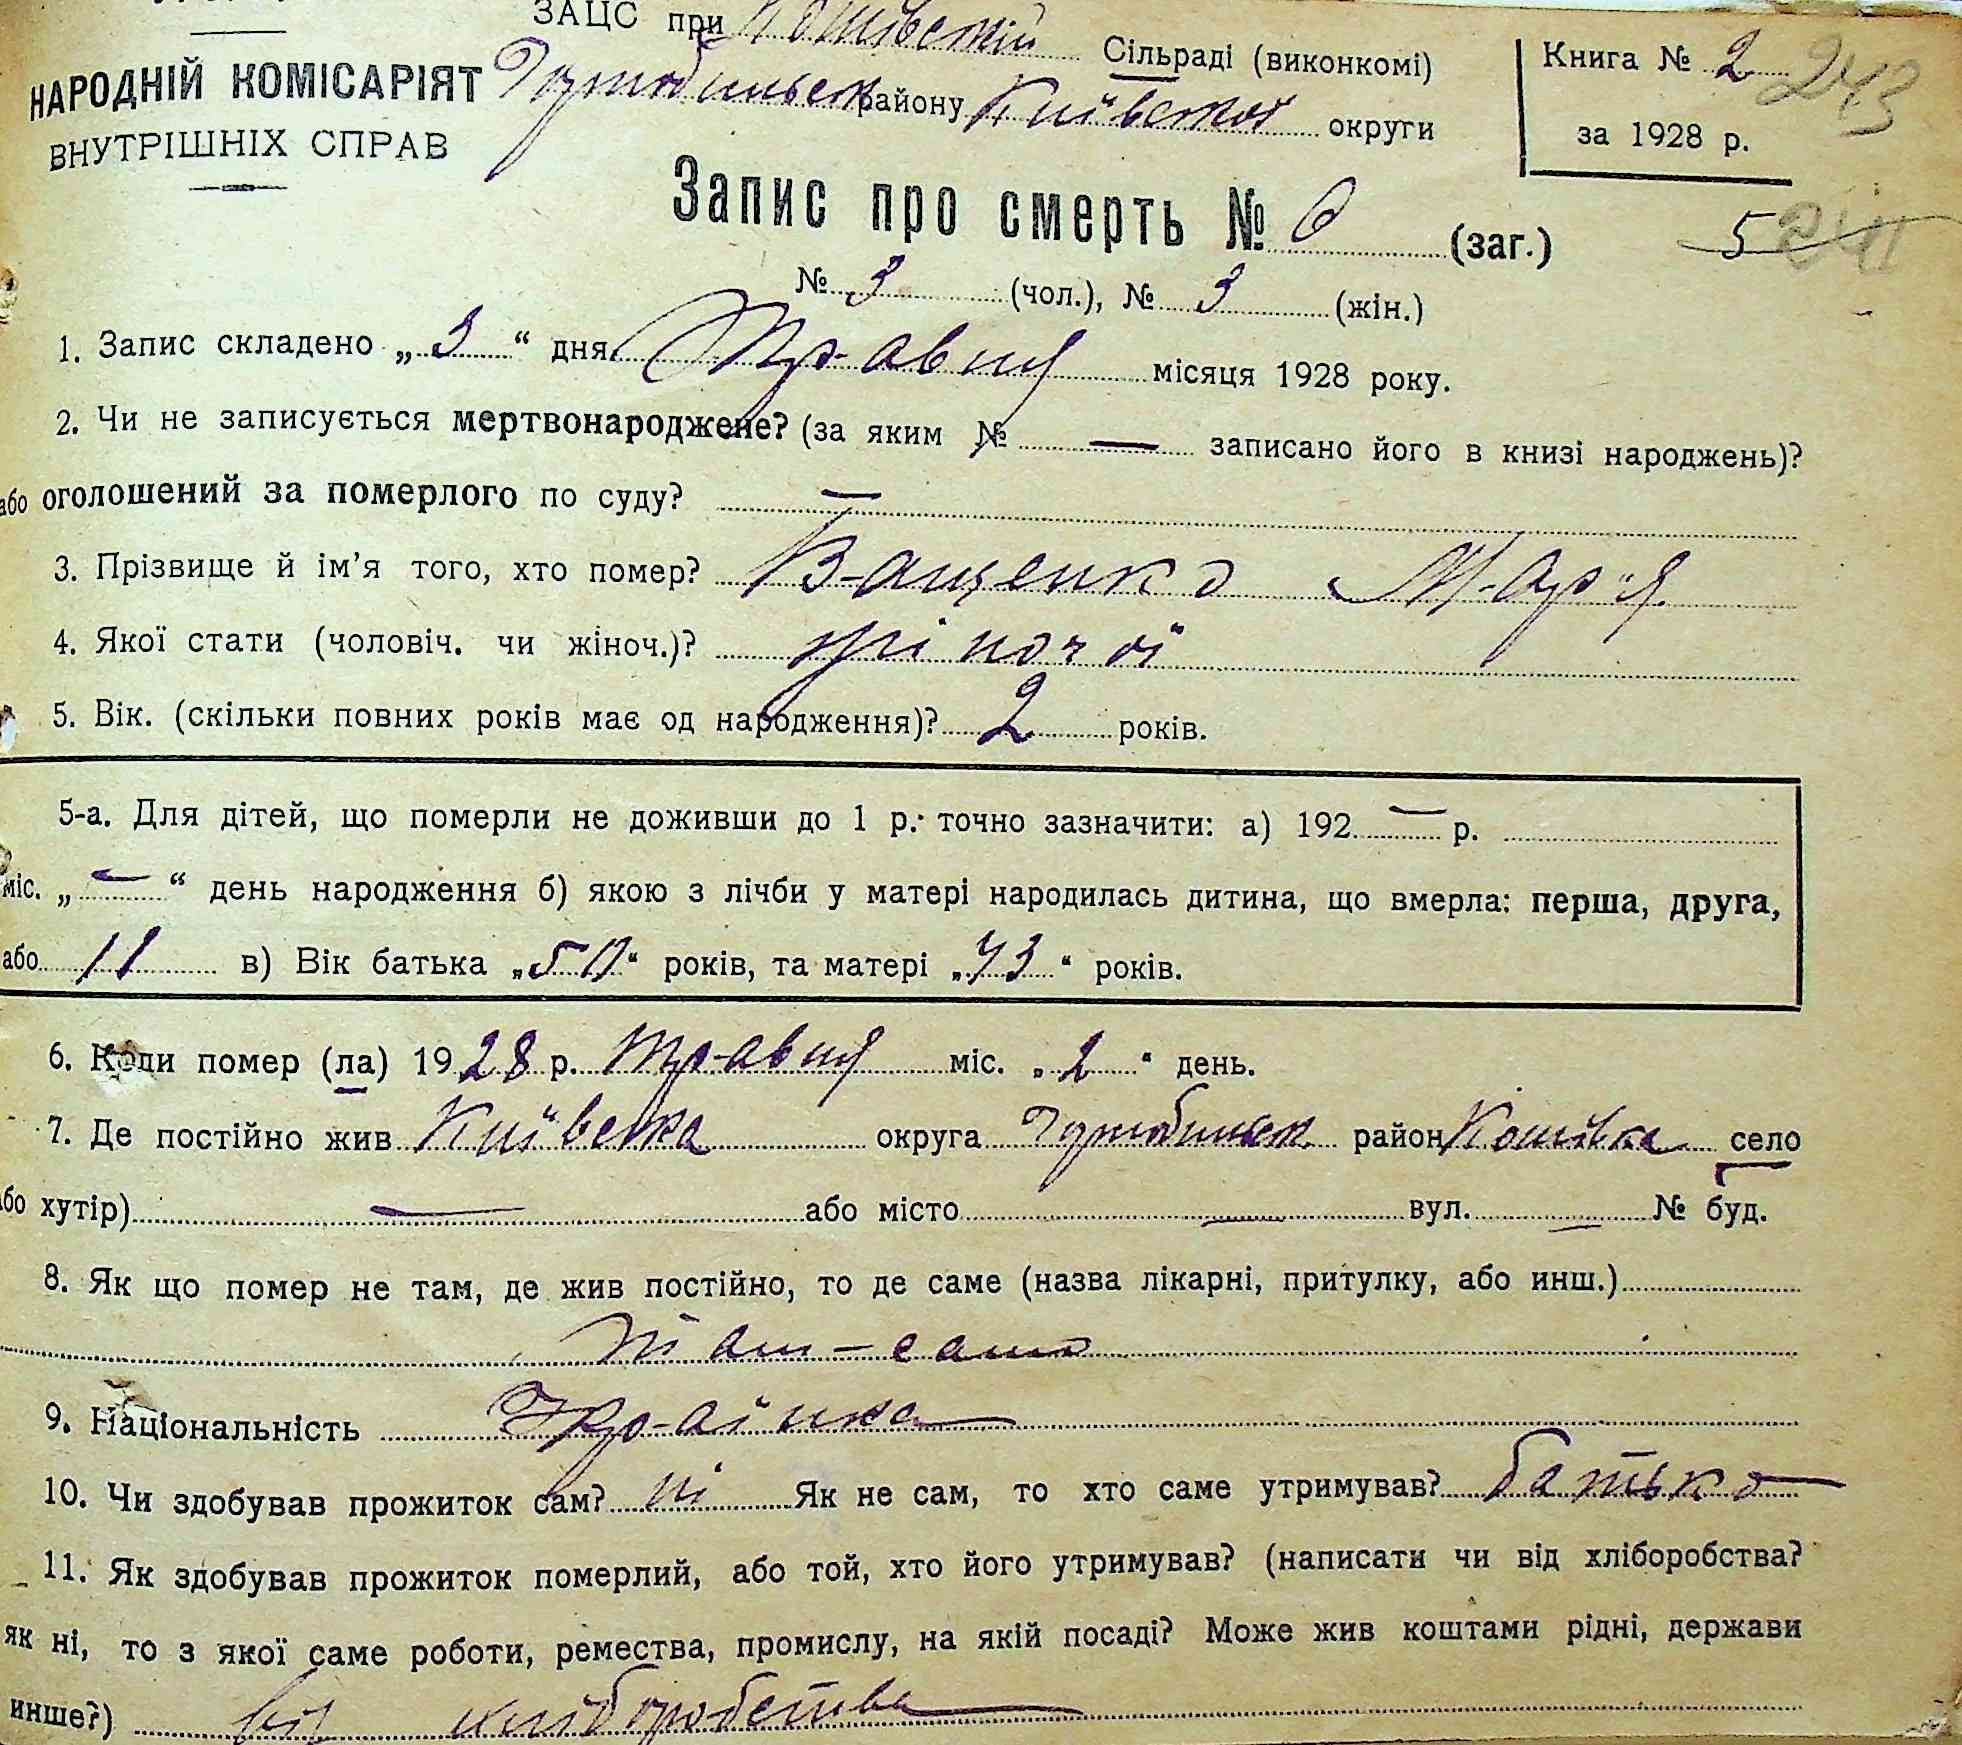 ЗАЦС при Кошівській Сільраді (виконкомі)
НАРОДНІЙ КОМІСАРІЯТ
ВНУТРІШНІХ СПРАВ
району Київської округи
Книга № 2 243
за 1928 р.
Запис про смерть № 6 (заг.)
5 241
№ 3 (чол.), № 3 (жін.)
1. Запис складено „ 3 “ дня Травня місяця 1928 року.
2. Чи не записується мертвонароджене? (за яким № — записано його в книзі народжень)?
або оголошений за померлого по суду? —
3. Прізвище й ім’я того, хто помер? Ващенко Мар'я
4. Якої стати (чоловіч. чи жіноч.)? жіночої
5. Вік. (скільки повних років має од народження)? 2 років.
5-а. Для дітей, що померли не доживши до 1 р. точно зазначити: а) 192 — р.
міс. „ — “ день народження б) якою з лічби у матері народилась дитина, що вмерла: перша, друга,
або 11 в) Вік батька „50“ років, та матері „43“ років.
6. Коли помер (ла) 1928 р. травня міс. „ 2 “ день.
7. Де постійно жив Київська округа район Кошівка село
або хутір) — або місто — вул. — № буд.
8. Як що помер не там, де жив постійно, то де саме (назва лікарні, притулку, або инш.)
там-само
9. Національність Українка
10. Чи здобував прожиток сам? ні Як не сам, то хто саме утримував? батько
11. Як здобував прожиток померлий, або той, хто його утримував? (написати чи від хліборобства?
як ні, то з якої саме роботи, ремества, промислу, на якій посаді? Може жив коштами рідні, держави
инше?) від хліборобства